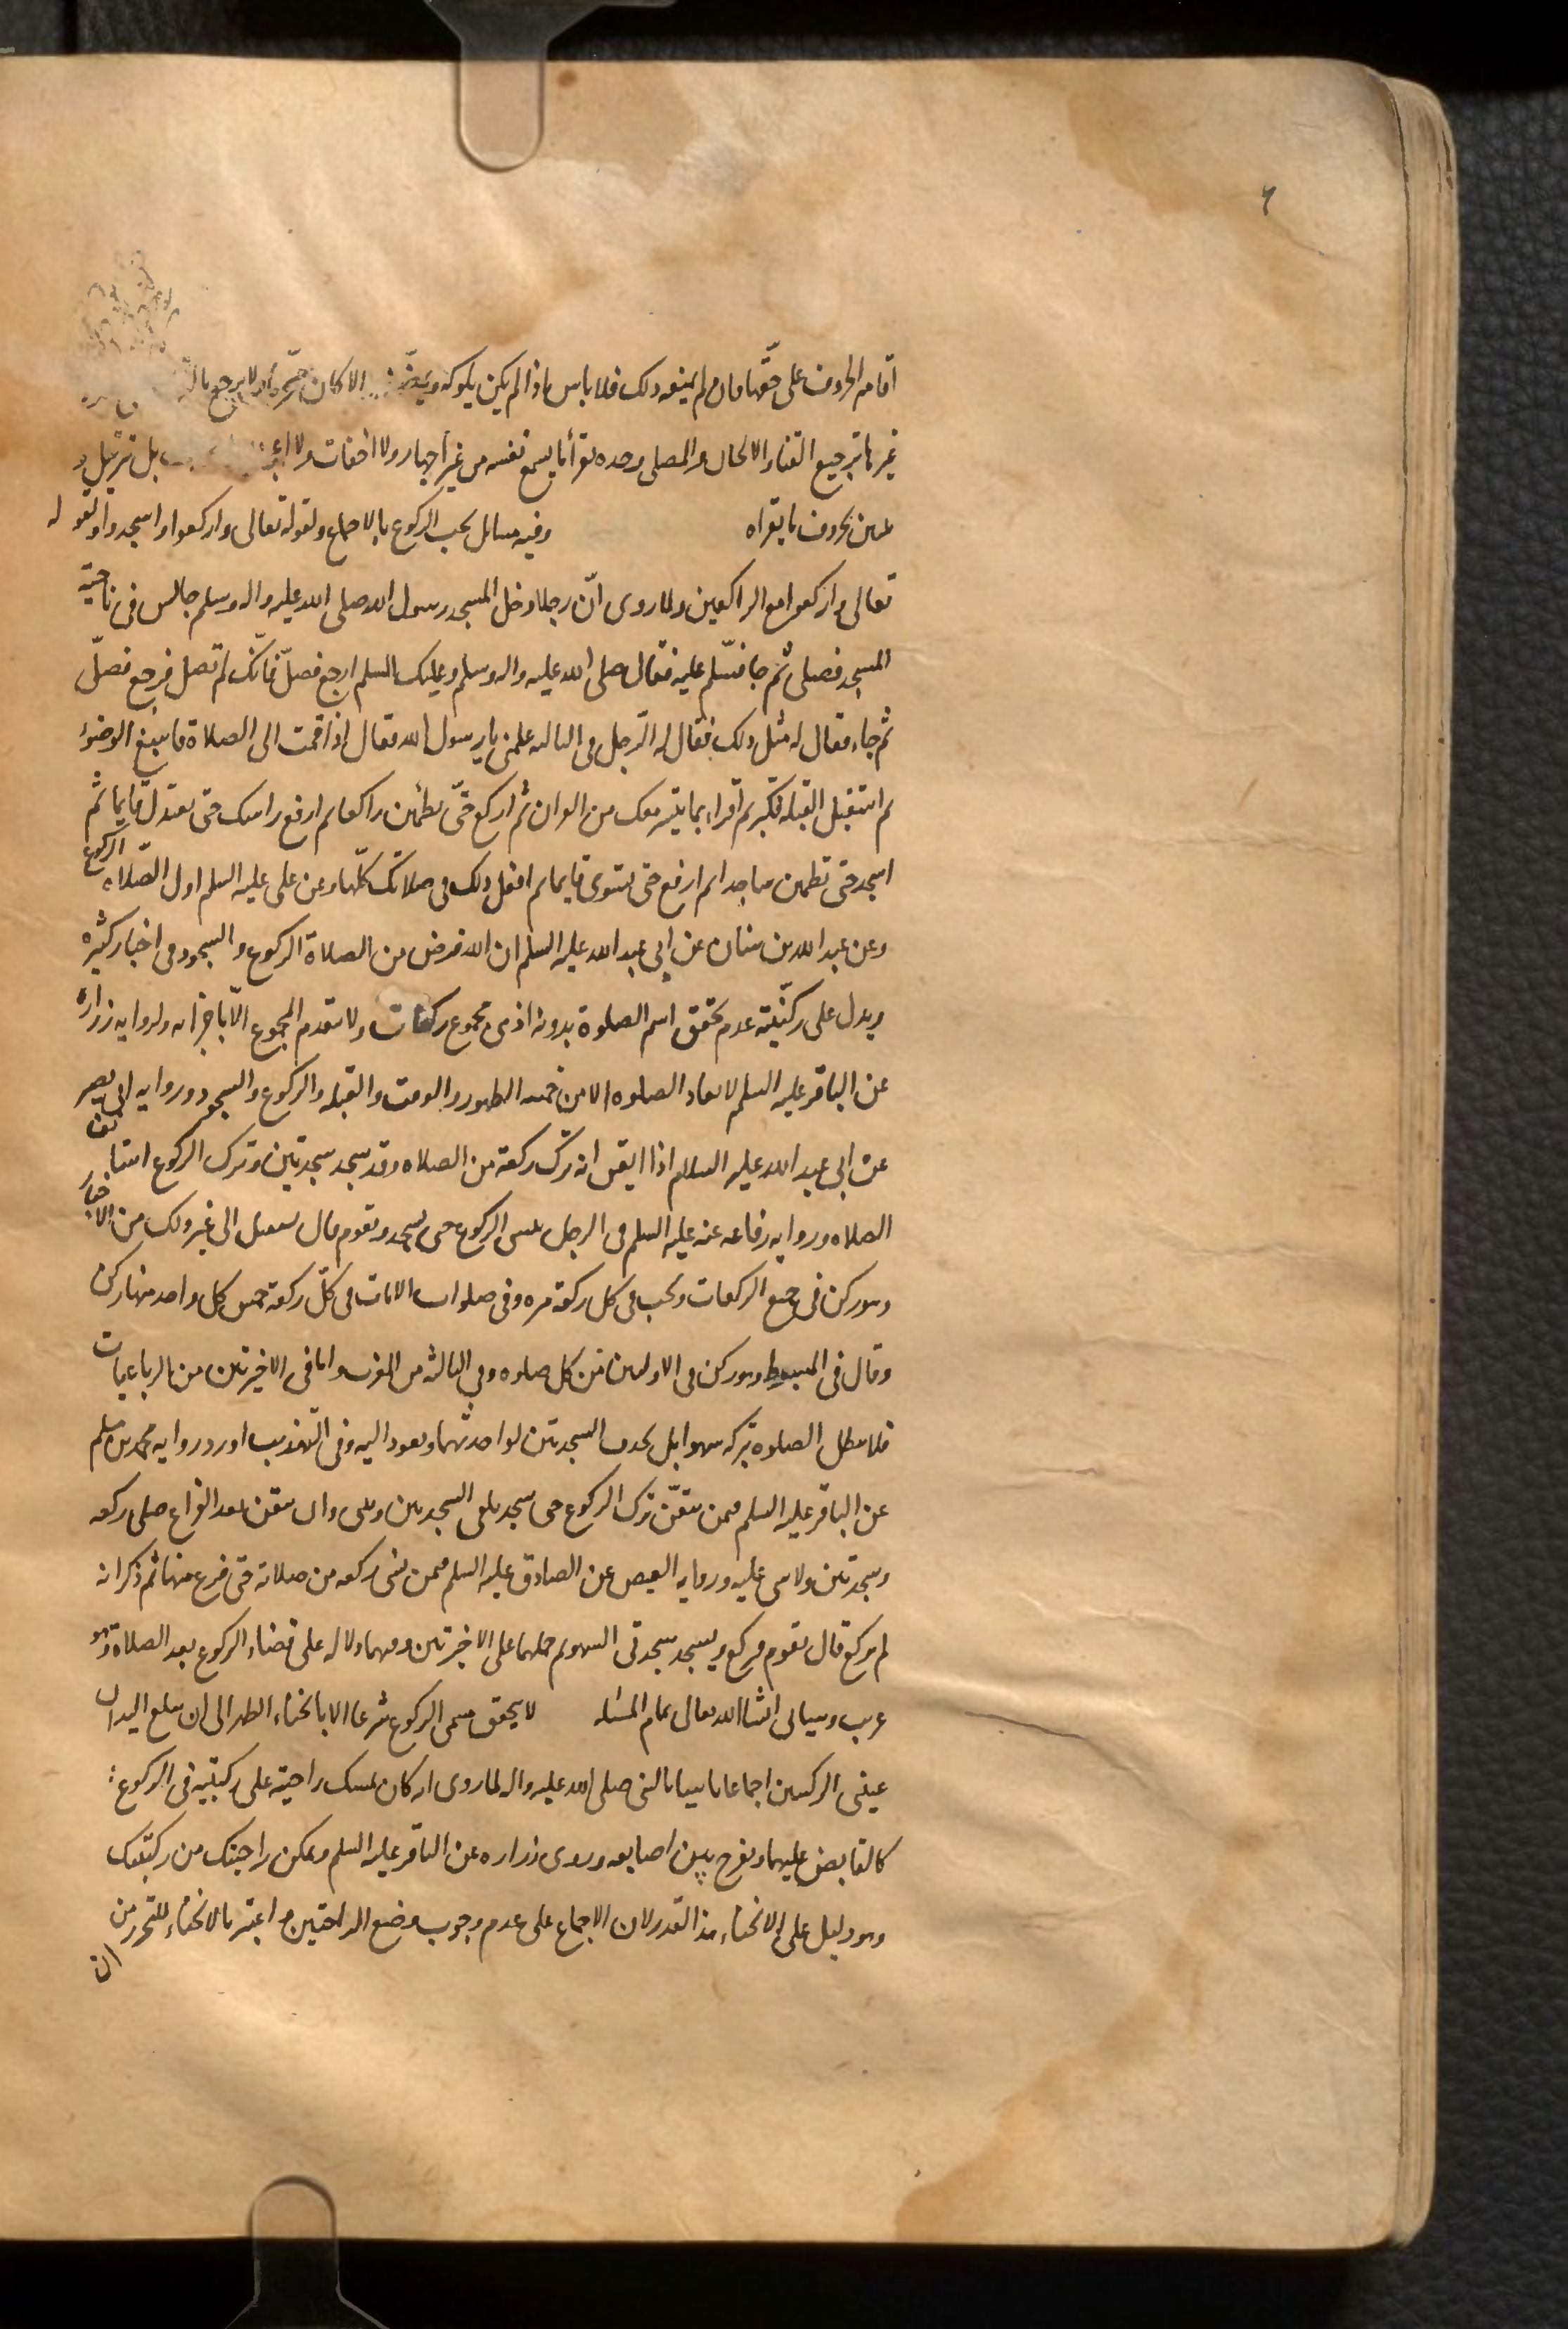 ٦
اقامه الحروف على حقها فان لم يمنعه ذلك فلا باس به اذا لم يكن يلوكه الا كان ولا يرجع
غيرها ترجيع الغناء والالحان والمصلى وحده يقرأ ما يسمع نفسه من غير اجهار ولا اخفات ولا بل ترتيل و
تبيين بحروف ما يقراه وفيه مسائل يجب الركوع بالاجماع ولقوله تعالى واركعوا واسجدوا ولقوله
تعالى واركعوا مع الراكعين ولما روى انّ رجلا دخل المسجد ورسول الله صلى الله عليه واله وسلم جالس فى ناحيه
المسجد فصلى ثم جا فسّلم عليه فقال صلى الله عليه واله وسلم وعليك السلم ارجع فصلّ فانّك لم تصل فرجع فصلّ
ثم جاء فقال له مثل ذلك فقال له الرّجل فى الثالثه علمنى يا رسول الله فقال اذا قمت الى الصلاة فاسبغ الوضوء
ثم استقبل القبله فكبر ثم اقراء بما يتيسر معك من القران ثم اركع حتّى تطمئن راكعا ثم ارفع راسك حتى تعتدل قايما ثم
اسجد حتى تطمئن ساجدا ثم ارفع حتى تستوى قايما ثم افعل ذلك فى صلاتك كلّها وعن على عليه السلم اول الصّلاه الركوع
وعن عبد الله بن سنان عن ابى عبد الله عليه السلم ان الله فرض من الصلاة الركوع والسجود فى اخبار كثيره
ويدل على ركنيّته عدم تحقق اسم الصلوة بدونه اذ هى مجموع ركعات ولا يتقدم المجموع الّا باجزائه ولروايه زراره
عن الباقر عليه السلم لا تعاد الصلوه الا من خمسه الطهور والوقت والقبله والركوع والسجود وروايه ابى بصير
عن ابى عبد الله عليه السلام اذا ايقن انه ترك ركعة من الصلاه وقد سجد سجدتين وترك الركوع استانف
الصلاه وروايه رفاعه عنه عليه السلم فى الرجل ينسى الركوع حتى يسجد ويقوم قال يستقبل الى غير ذلك من الاخبار
وهو ركن فى جميع الركعات ويجب فى كل ركعة مره وفى صلوات الايات فى كلّ ركعة خمس كل واحد منها ركن
وقال فى المبسوط وهو ركن فى الاوليين من كل صلوه وفى الثالثه من المغرب واما فى الاخيرتين من الرباعيات
فلا تبطل الصلوه بتركه سهوا بل يحذف السجدتين لواحدتهما ويعود اليه وفى التّهذيب اورد روايه محمد بن مسلم
عن الباقر عليه السلم فيمن تيقّن ترك الركوع حتى سجد يلقى السجدتين ويبنى وان تيقن بعد الفراغ صلى ركعه
وسجدتين ولا شى عليه وروايه العيص عن الصادق عليه السلم فيمن نسى ركعه من صلاته حتى فرغ منها ثم ذكر انه
لم يركع قال يقوم فيركع ويسجد سجدتى السهو ثم حملهما على الاخيرتين وفيهما دلاله على قضاء الركوع بعد الصلاة وهو
غريب وسياتى انشا الله تعالى تمام المسئله لا يتحقق مسمى الركوع شرعا الا بانحناء الظهر الى ان يبلغ اليدان
عينى الركبتين اجماعا تاسيا بالنبى صلى الله عليه واله لما روى انه كان يمسك راحتيه على ركبتيه فى الركوع
كالقابض عليهما ويفرج بين اصابعه وروى زراره عن الباقر عليه السلم وتمكن راحتيك من ركبتيك
وهو دليل على الانحناء هذا القدر لان الاجماع على عدم وجوب وضع الراحتين واعتبر بالانحناء للتحرز من
ان